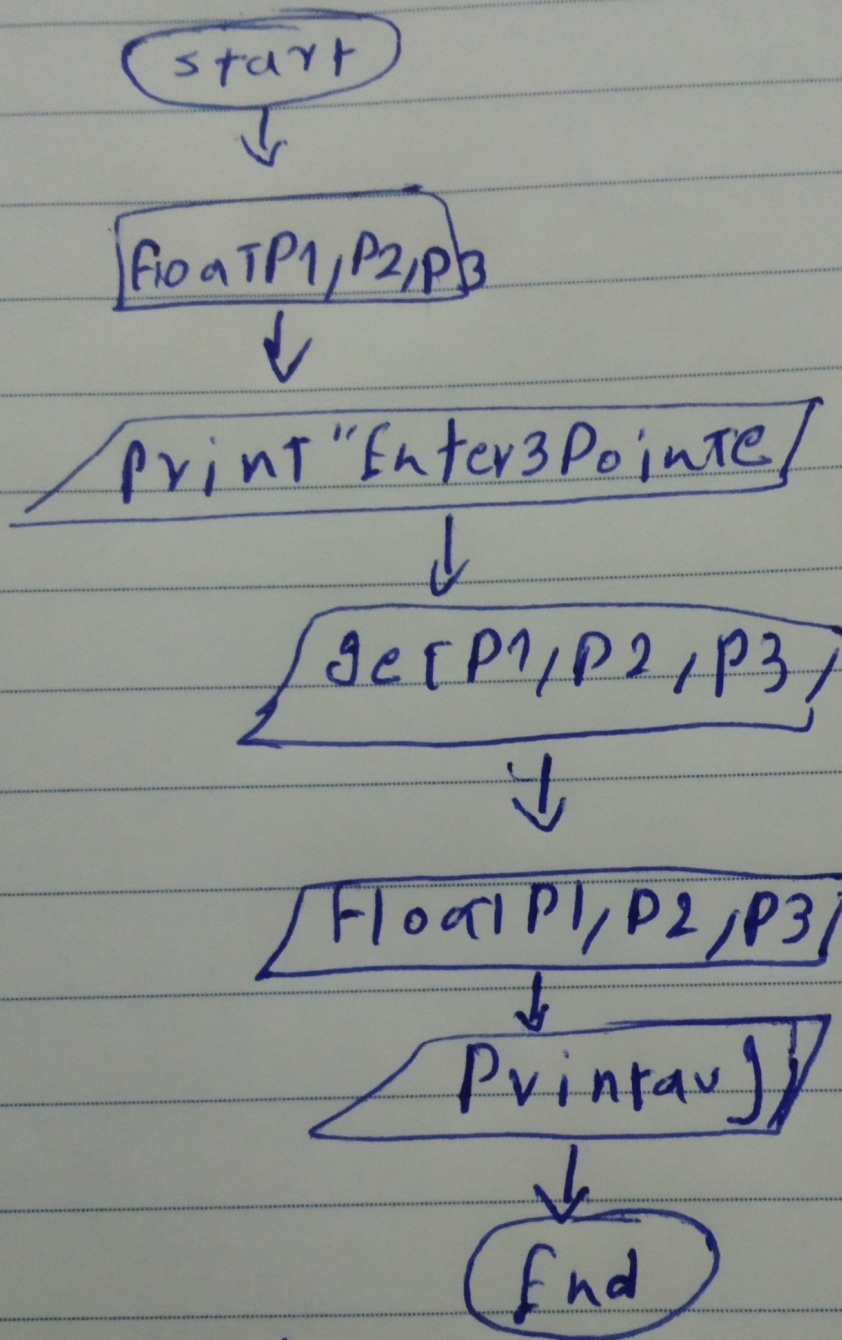 start
FloaTP1,P2,P3
PrinT "Enter3PoinTe
geT P1,P2,P3,
FloaT P1,P2,P3
Printav
End